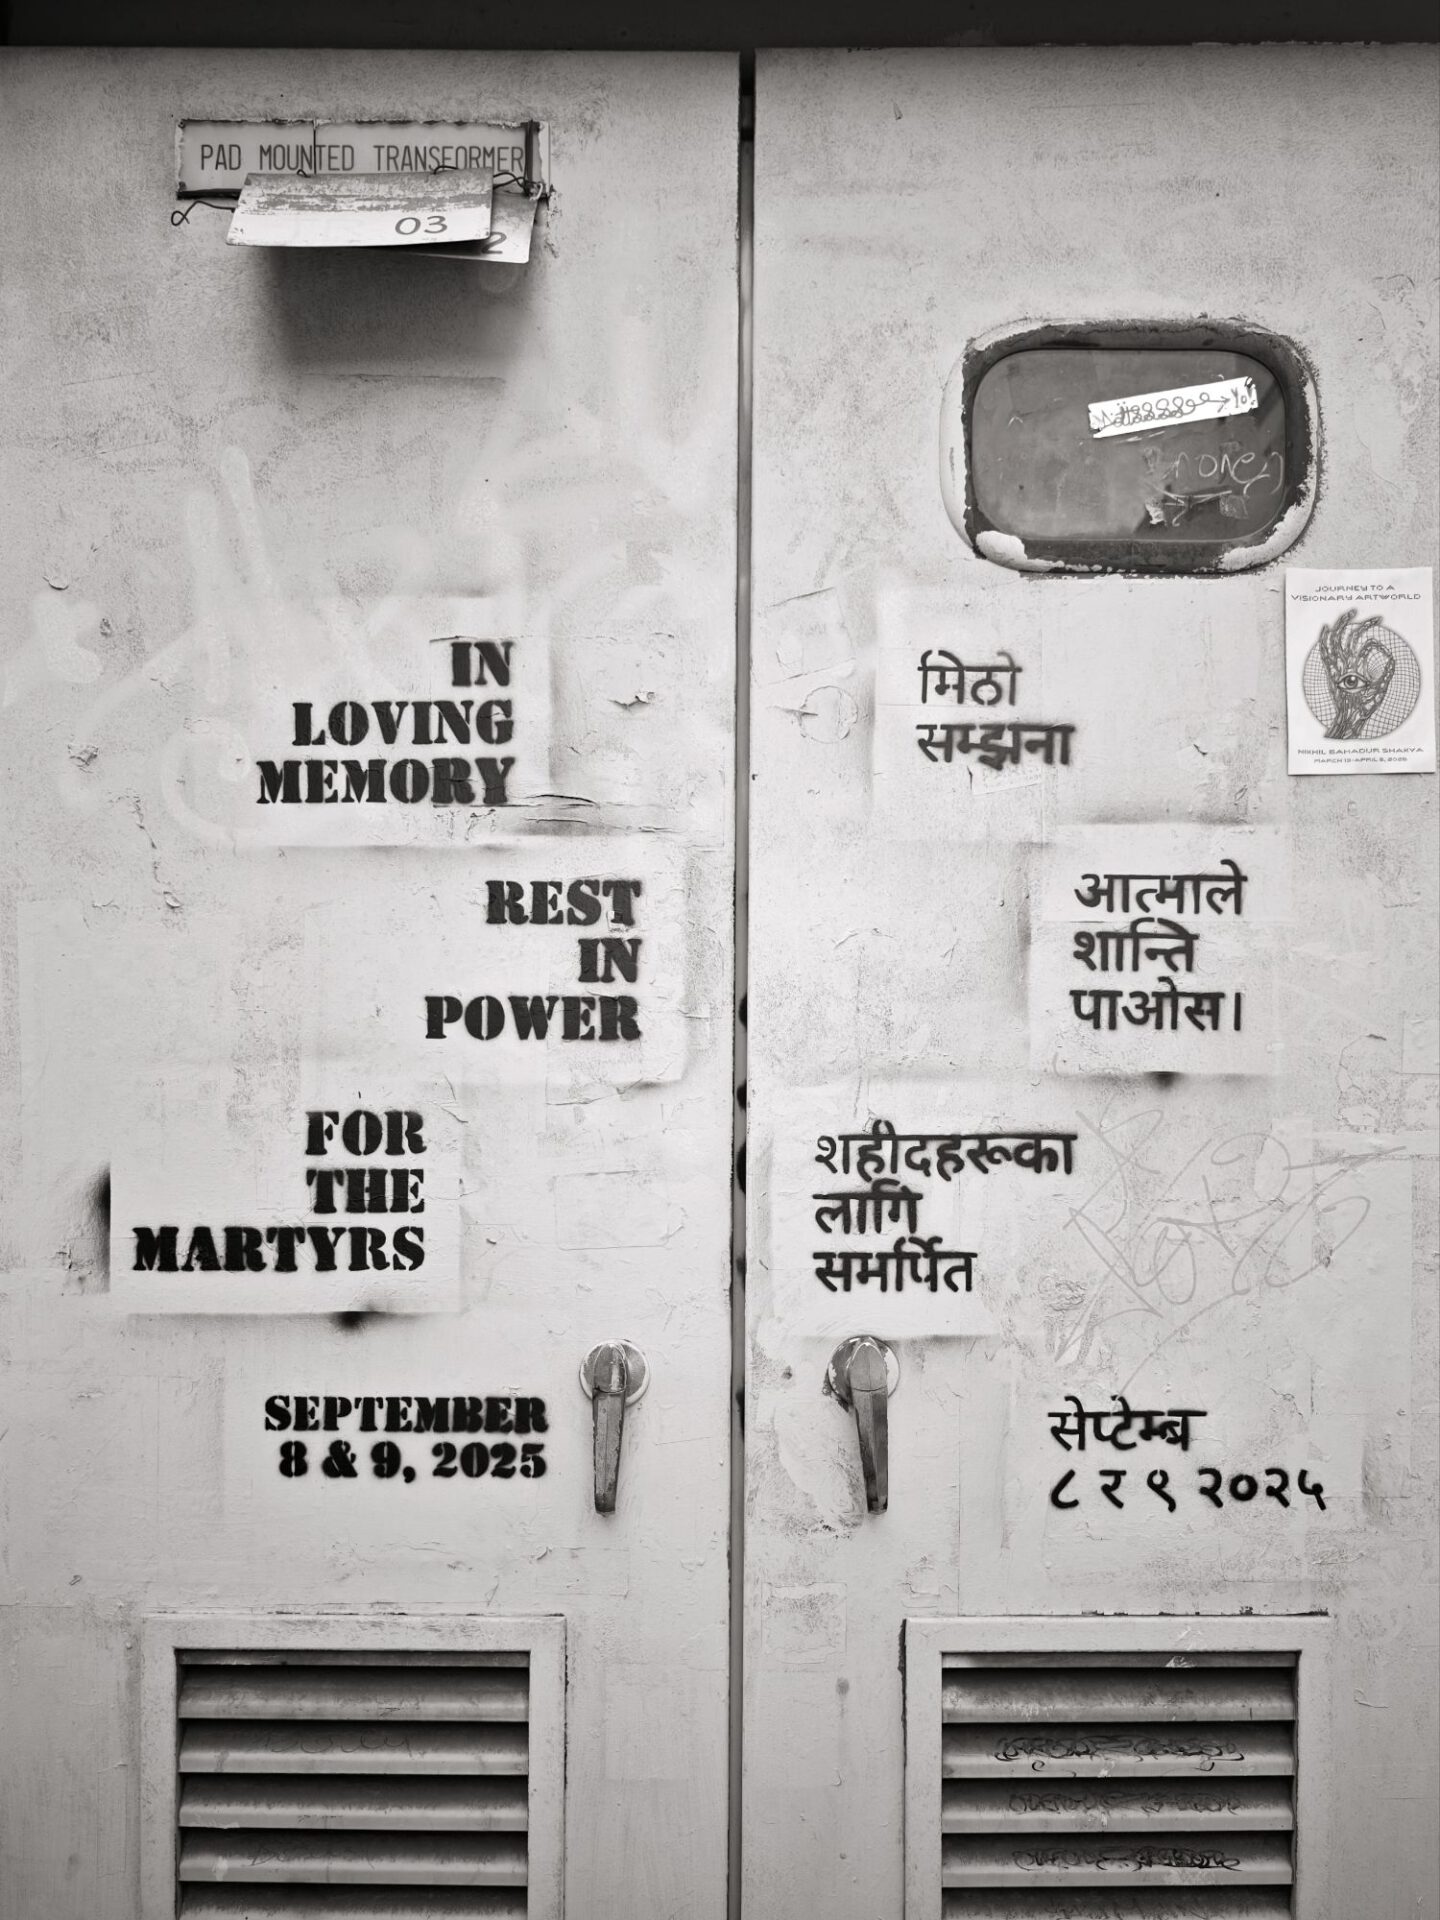 PAD MOUNTED TRANSFORMER
03
2
IN
LOVING
MEMORY
REST
IN
POWER
FOR
THE
MARTYRS
SEPTEMBER
8 & 9, 2025
Yo!
money
JOURNEY TO A
VISIONARY ARTWORLD
NIKHIL BAHADUR SHAKYA
MARCH 13-APRIL 5, 2025
मिठो
सम्झना
आत्माले
शान्ति
पाओस।
शहीदहरूका
लागि
समर्पित
सेप्टेम्ब
८ र ९ २०२५